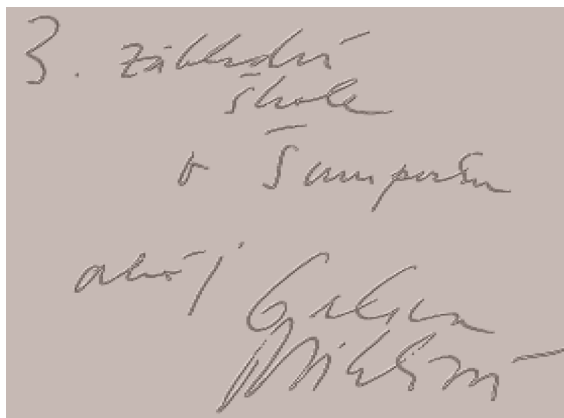 3. základní
škole
v Šumperku
ahoj